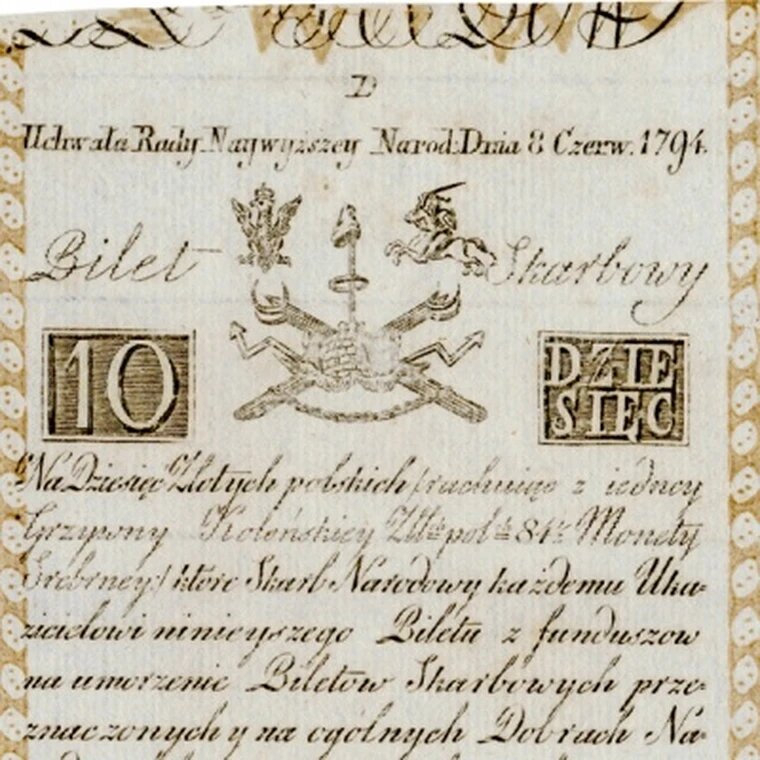 D
Uchwała Rady Naywyższey Narod: Dnia 8 Czerw. 1794.
Bilet Skarbowy
10
DZIE
SIĘC
Na Dziesięć Złotych polskich /rachuiąc z iedney
Grzywny Kolońskiey Złł: pol: 84½ Monety
Srebrney/ które Skarb Narodowy każdemu Uka-
zicielowi ninieyszego Biletu z funduszow
na umorzenie Biletow Skarbowych prze-
znaczonych y na ogólnych Dobrach Na-